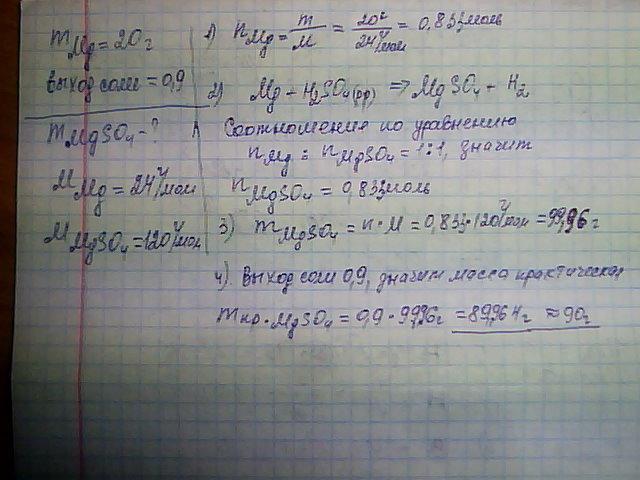 m Mg = 20 г
выход соли = 0,9
m MgSO4 - ?
M Mg = 24 г/моль
M MgSO4 = 120 г/моль
1) n Mg = m/M = 20г/24 г/моль = 0,833 моль
2) Mg + H2SO4(рр) => MgSO4 + H2
Соотношение по уравнению
n Mg : n MgSO4 = 1:1, значит
n MgSO4 = 0,833 моль
3) m MgSO4 = n · M = 0,833 · 120 г/моль = 99,96 г
4) Выход соли 0,9, значит масса практическая
m пр. MgSO4 = 0,9 · 99,96 г = 89,964 г ≈ 90 г